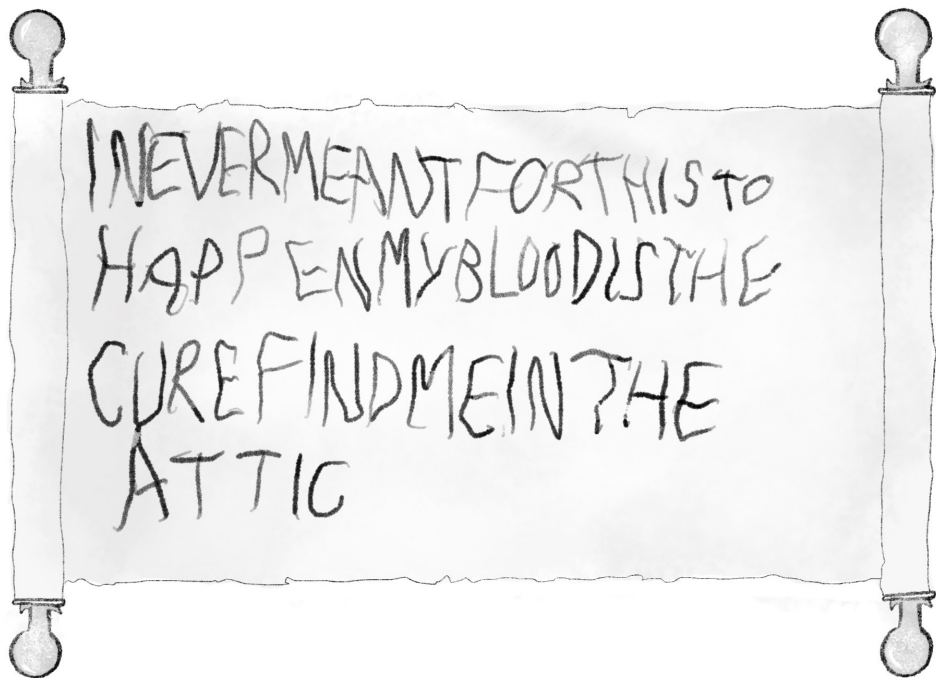 INEVERMEANTFORTHISTO
HAPPENMYBLOODISTHE
CUREFINDMEINTHE
ATTIC